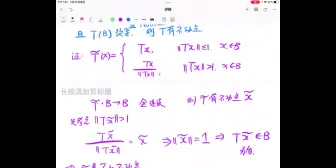 且 T(B) 致密, 则 T有不动点
证: T̃(x) = { Tx, ‖Tx‖≤1, x∈B
Tx/‖Tx‖, ‖Tx‖>1, x∈B
长按添加页标题
T̃: B→B 全连续 ⇒ T̃有不动点 x̃
‖Tx̃‖>1
Tx̃/‖Tx̃‖ = x̃ ⇒ ‖x̃‖=1 ⇒ Tx̃∈B